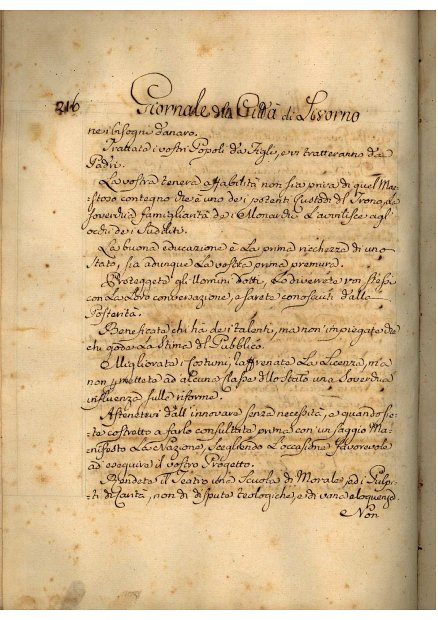 216 Giornale della Città di Livorno
ne i bisogni danaro.
Trattate i vostri Popoli da Figli, e vi tratteranno da
Padri.
La vostra tenera affabilità non sia priva di quel Mae-
stoso contegno che è uno dei potenti Custodi del Trono, la
soverchia famigliarità de i Monarchi L'avvilisce agl'
occhi de i Sudditi.
La buona educazione è La prima richezza di uno
Stato, sia adunque La vostra prima premura.
Proteggete gli Uomini Dotti, La diverrete voi stessi
con La loro conversazione, e sarete conosciuti dalla
Posterità.
Beneficate chi há de i talenti, ma non impiegate che
chi gode La stima del Pubblico.
Migliorate i Costumi, raffrenate La Licenza, ma
non permettete ad alcuna Classe dello Stato una Soverchia
influenza sulle riforme.
Astenetevi dall'innovare senza necessità, e quando sie-
te costretto a farlo consultate prima con un saggio Ma-
nifesto La Nazione, Scegliendo L'occasione favorevole
ad eseguire il vostro Progetto.
Rendete il Teatro una Scuola di Morale, ed i Pulpi-
ti di Carità, non di dispute teologiche, e di vana eloquenza.
Non